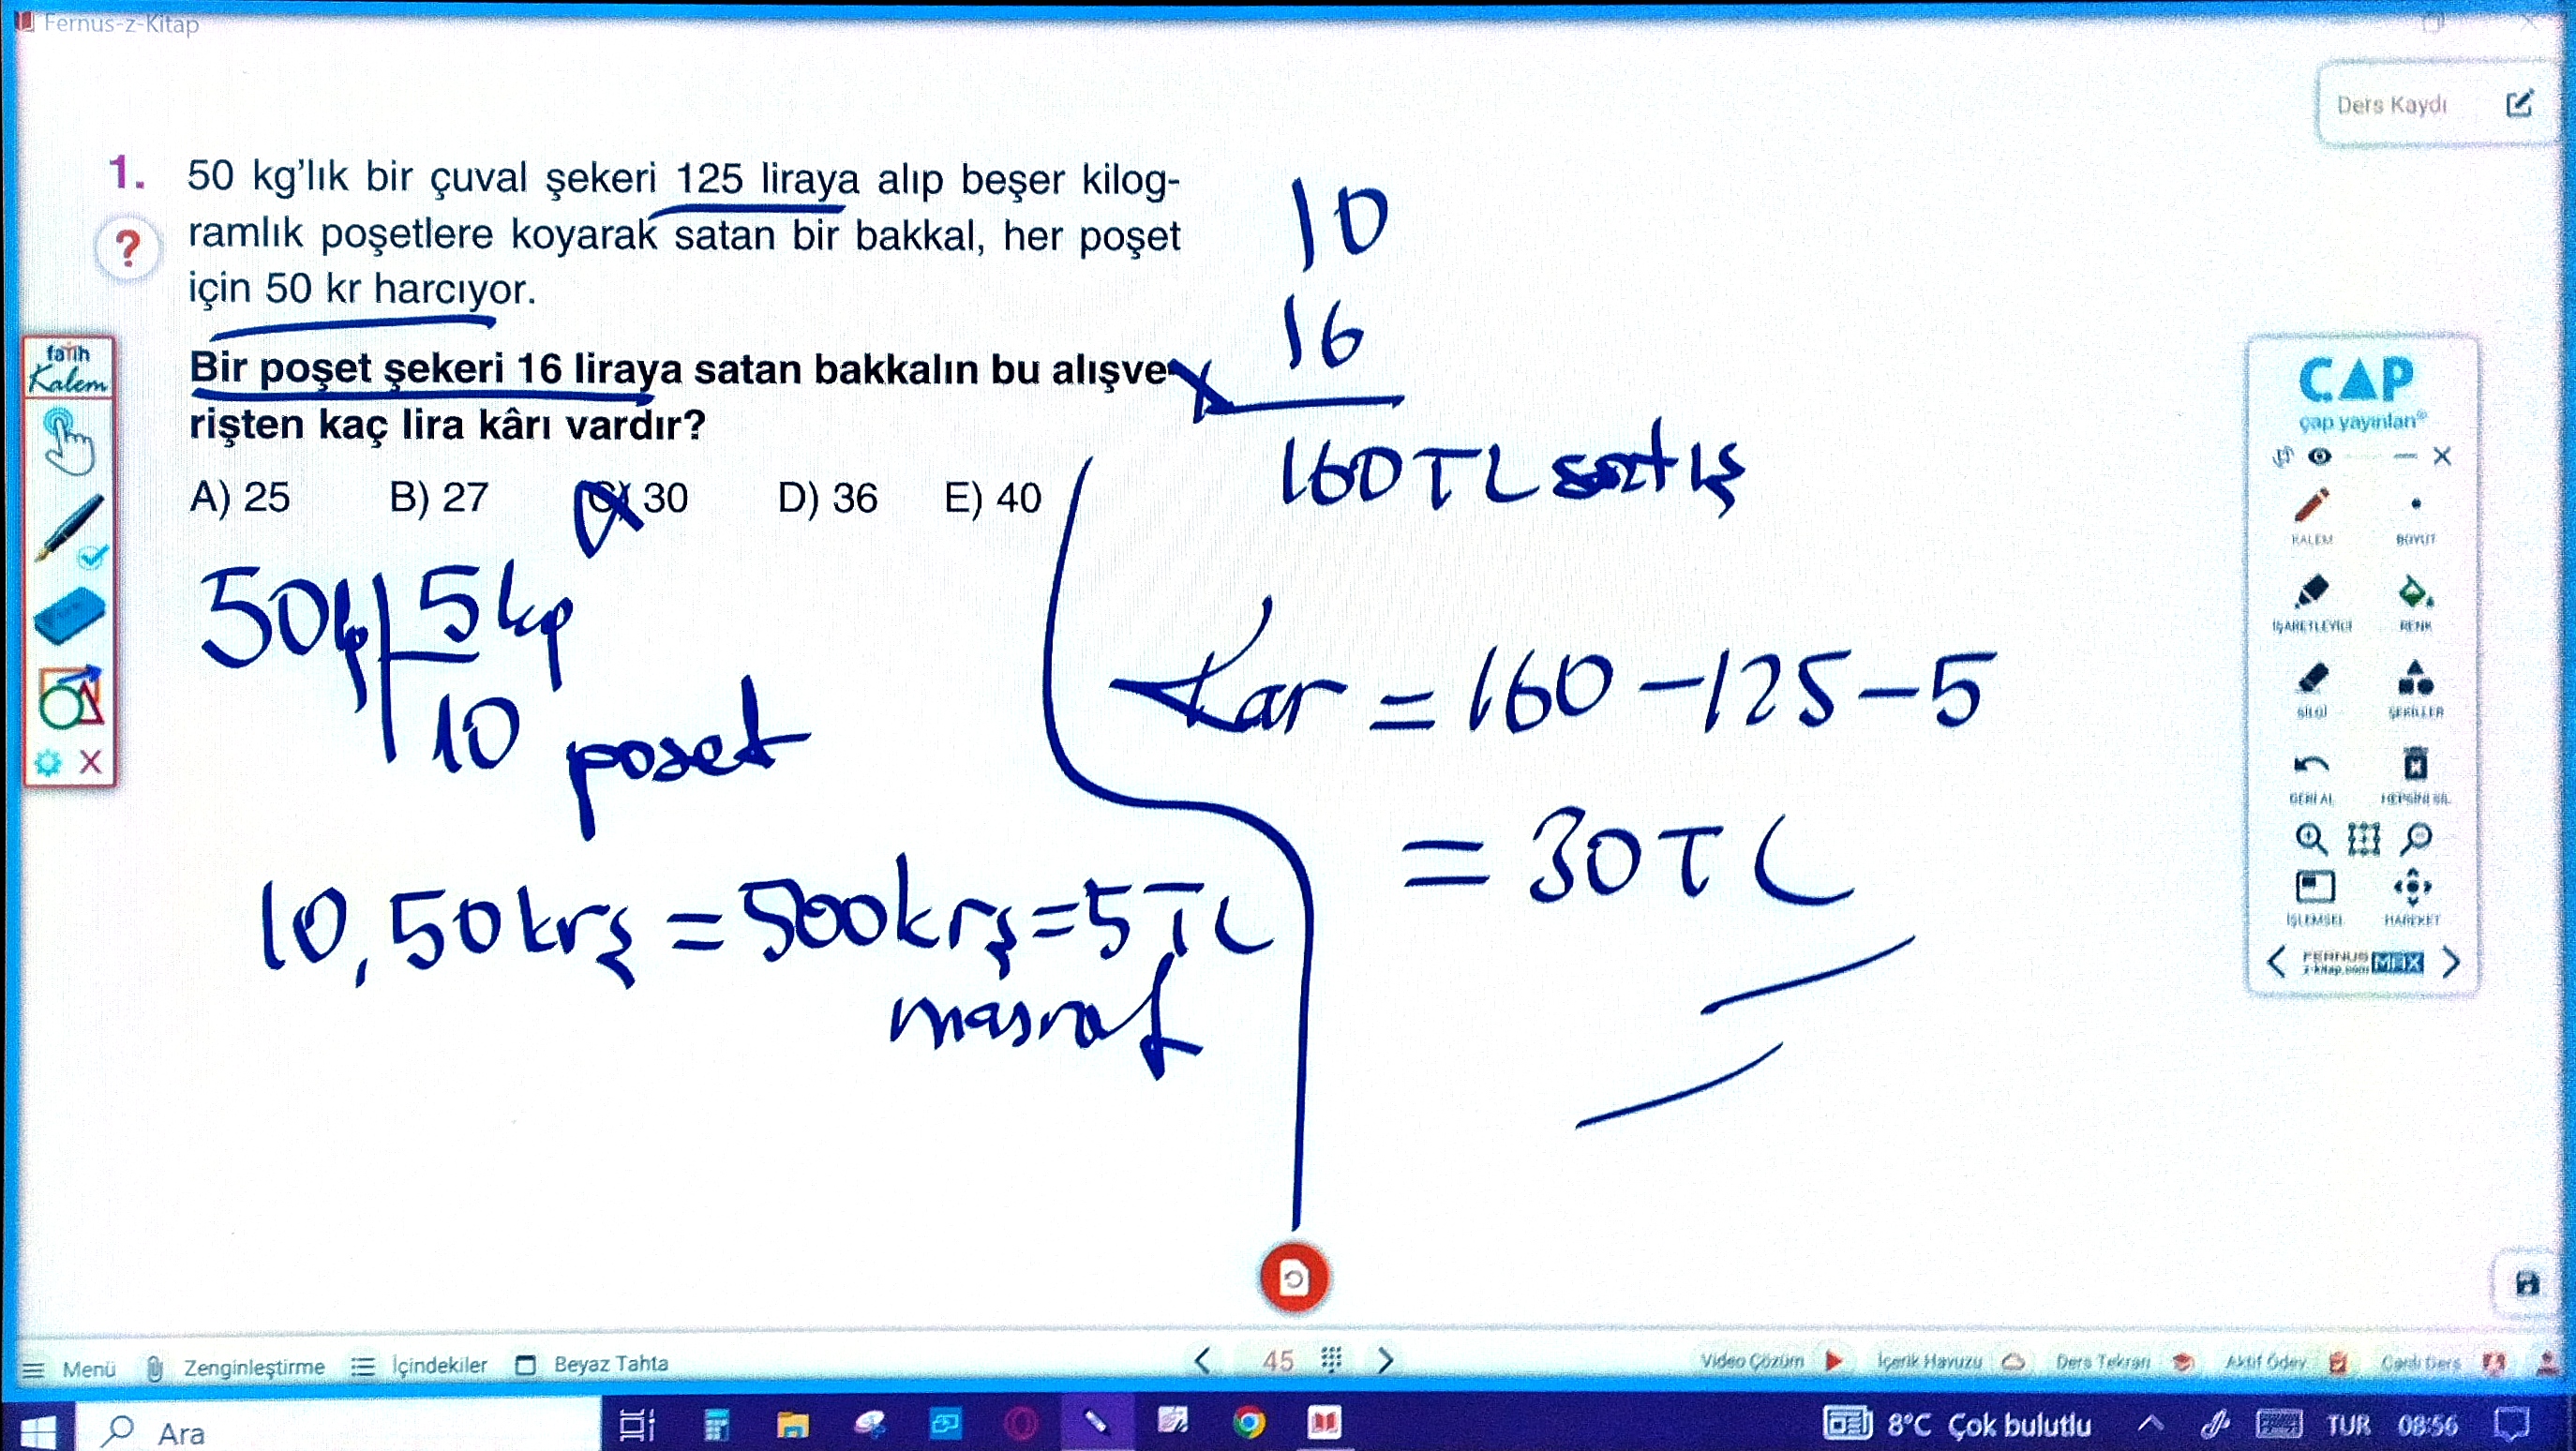 Fernus-z-Kitap
Ders Kaydı
1. 50 kg'lık bir çuval şekeri 125 liraya alıp beşer kilog-
ramlık poşetlere koyarak satan bir bakkal, her poşet
için 50 kr harcıyor.
Bir poşet şekeri 16 liraya satan bakkalın bu alışve-
rişten kaç lira kârı vardır?
A) 25 B) 27 C) 30 D) 36 E) 40
?
fatih
Kalem
10
16
x
160 TL satış
50 kg 5 kg
10 poset
10, 50 krş = 500 krş = 5 TL
masraf
Kar = 160 - 125 - 5
= 30 TL
ÇAP
çap yayınları®
KALEM BOYUT
İŞARETLEYİCİ RENK
SİLGİ ŞEKİLLER
GERİ AL HEPSİNİ SİL
İŞLEMSEL HAREKET
FERNUS
z-kitap.com MEX
Menü Zenginleştirme İçindekiler Beyaz Tahta 45 Video Çözüm İçerik Havuzu Ders Tekrarı Aktif Ödev Canlı Ders
Ara 8°C Çok bulutlu TUR 08:56